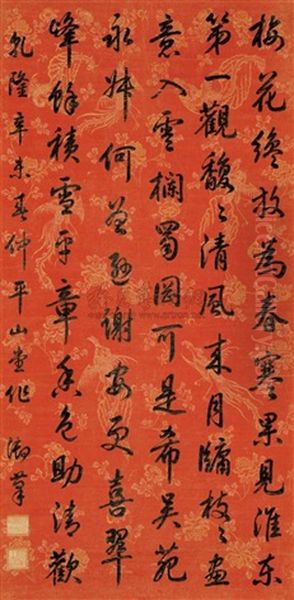 梅花纔放為春寒果見淮東
第一觀馥々清風来月牖枝々畫
意入雲欄蜀岡可是希吴苑
永叔何曾遜謝安更喜翠
峰餘積雪平章香色助清歡
乾隆辛未春仲平山堂作 御筆